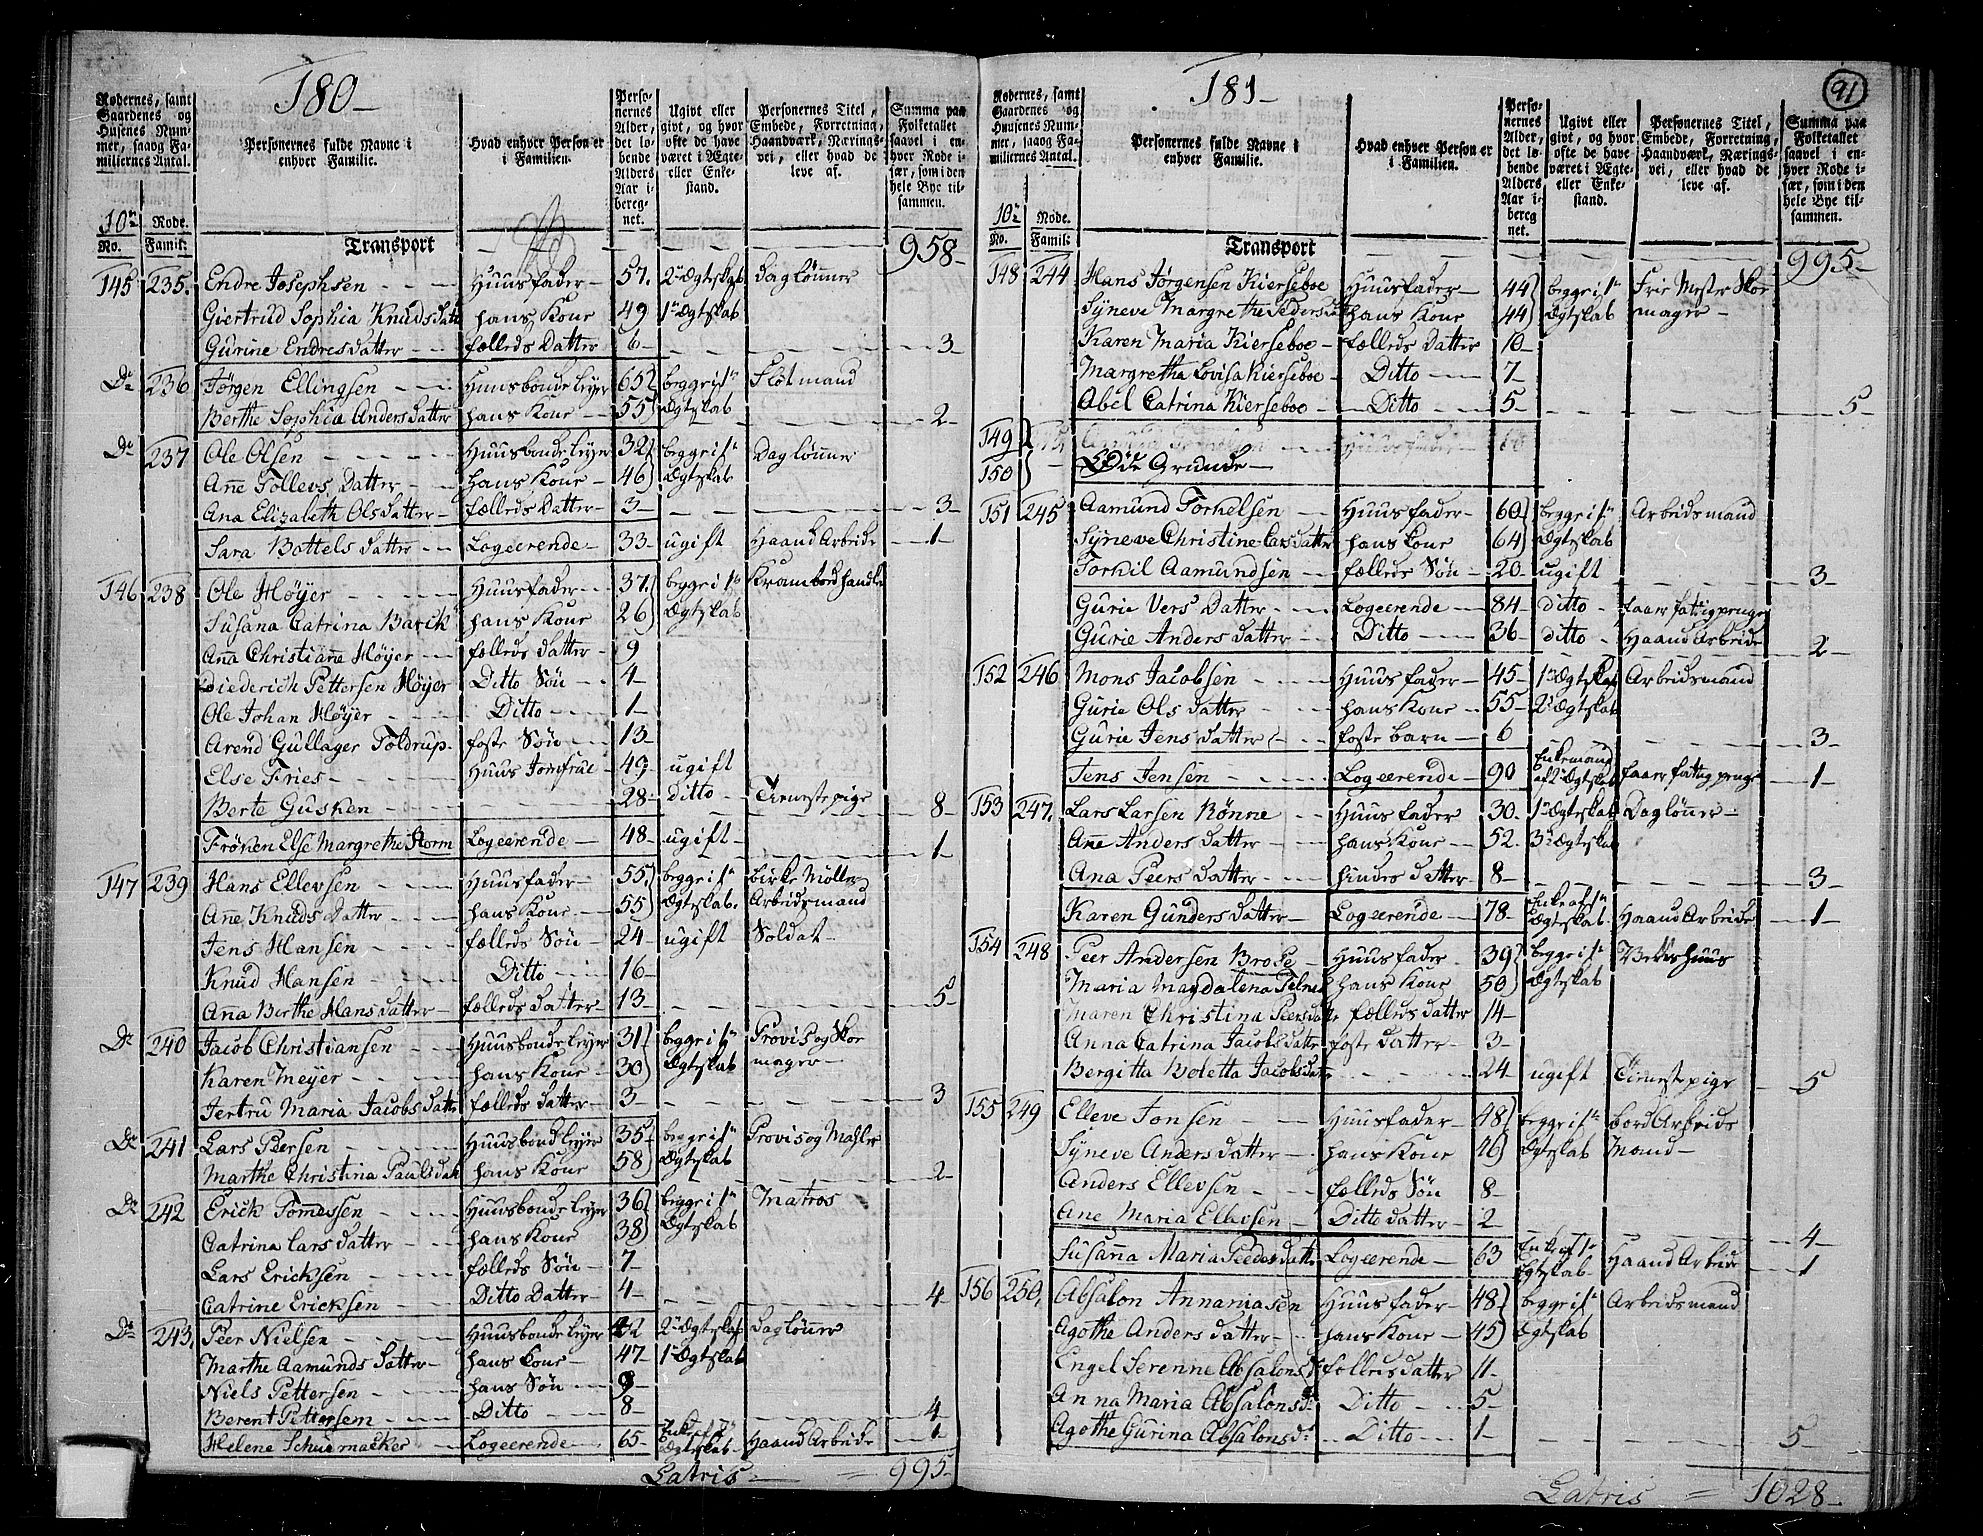 180
Rodernes, samt Gaardenes og Husenes Nummer, saavog Familiernes Antal.
Personernes fulde Navne i enhver Familie.
Hvad enhver Person er i Familien.
Personernes Alder, det løbende Alders Aar iberegnet.
Ugivt eller givt, og hvor ofte de have været i Ægte- eller Enkestand.
Personernes Titel, Embede, Forretning, Haandværk, Næringsvei, eller hvad de leve af.
Summa paa Folketallet saavel i enhver Rode især, som i den hele Bye tilsammen.
10de Rode.
No. Famil:
Transport 958
145 235. Endre Josephsen Huusfader 57. 2 Ægteskab Daglønner
Giertrud Sophia Knudsdatt hans Kone 49 1 Ægtskab
Gurine Endresdatter fælleds Datter 6 3
Do 236 Jørgen Ellingsen Huusbonde leyer 65 begge i 1te Flotmand
Berthe Sophia Andersdatter hans Kone 55 Ægtskab 2
Do 237 Ole Olsen Huusbonde leyer 32 begge i 1te Daglønner
Anne Tollevs Datter hans Kone 46 Ægtskab
Ana Elizabeth Olsdatter fælleds Datter 3 3
Sara Bottels datter Logeerende 33 ugift Haand Arbeide 1
146 238 Ole Høyer Huusfader 37. begge i 1te Krambod handle
Susana Catrina Barck hans Kone 26 Ægtskab
Anna Christianne Høyer fælleds datter 9
Diederich Pettersen Høyer Ditto Søn 4
Ole Johan Høyer Ditto 1
Arend Gullager Toldrup foste Søn 13
Else Fries Huus Jomfrue 49 ugift
Berte Gusken 28 ditto Tieneste pige 8
Frøken Else Margrethe Storm Logeerende 48 ugift 1
147 239 Hans Ellevsen Huusfader 55 begge i 1te birke Møller
Anne Knuds Datter hans Kone 55 Ægtskab Arbeidsmand
Jens Hansen fælleds Søn 24 ugift Soldat
Knud Hansen Ditto 16
Anna Berthe Hansdatter fælleds datter 13 5
Do 240 Jacob Christiansen Huusbonde leyer 31 begge i 1te Provis og Skor
Karen Meyer hans Kone 30 Ægtskab mager
Jertru Maria Jacobs Datt fælleds datter 3 3
Do 241 Lars Peersen Huusbonde leyer 35 begge i 1te Provis og Mahler
Marthe Christina Paulsdat hans Kone 58 Ægtskab 2
Do 242 Erick Tomessen Huusbonde leyer 36 begge i 1te Matros
Catrina Lars datter hans Kone 38 Ægtskab
Lars Ericksen fælleds Søn 7
Catrine Ericksen Ditto Datter 4 4
Do 243. Peer Nielsen Huusbonde leyer 42 2 Ægtskab Daglønner
Marthe Aamunds datter hans Kone 47 1 Ægtskab
Niels Pettersen hans Søn 9
Berent Pettersen Ditto 8 4
Helene Schumacker Logeerende 65 Ægtskab Haand Arbeide 1
Latris = 995
181 91
Rodernes, samt Gaardenes og Huusenes Nummer, saavog Familiernes Antal.
Personernes fulde Navne i enhver Familie.
Hvad enhver Person er i Familien.
Personernes Alder, det løbende Alders Aar iberegnet.
Ugivt eller givt, og hvor ofte de have været i Ægte- eller Enkestand.
Personernes Titel, Embede, Forretning, Haandværk, Næringsvei, eller hvad de leve af.
Summa paa Folketallet saavel i enhver Rode især, som i den hele Bye tilsammen.
10de Rode.
No. Famil:
Transport 995
148 244 Hans Jørgensen Kierseboe Huusfader 44 begge i 1te Frie Mester Skor
Syneve Margrethe Pedersdatt hans Kone 44 Ægtskab mager
Karen Maria Kierseboe fælleds datter 10
Margretha Lovisa Kierseboe Ditto 7
Abel Catrina Kierseboe Ditto 5 5
149
150 Øde Grunde
151 245 Aamund Torkelsen Huusfader 60 begge i 1te Arbeidsmand
Syneve Christine Larsdatter hans Kone 64 Ægtskab
Torkil Aamundsen fælleds Søn 20 ugift 3
Gurie Vers Datter Logeerende 84 ditto faaer fattigpenge
Gurie Anders datter Ditto 36 ditto Haand Arbeide 2
152 246 Mons Jacobsen Huusfader 45 1 Ægtskab Arbeidsmand
Gurie Ols datter hans Kone 55 2 Ægtskab
Gurie Jens datter foste barn 6 3
Jens Jensen Logeerende 90 Enkemand af 1 Ægtskab faaer fattig penge 1
153 247. Lars Larsen Rønne Huusfader 30 1 Ægtskab Daglønner
Anne Anders datter hans Kone 52. 3 Ægtskab
Ana Peers datter hindes datter 8 3
Karen Gunders datter Logeerende 78 Enke af 1te Ægtskab Haand Arbeide 1
154 248 Peer Andersen Brose Huusfader 39 begge i 1te
Maria Magdalena hans Kone 50 Ægtskab
Maren Christina Peersdatte fælleds datter 14
Anna Catrina Jacobsdatter foste datter 3
Bergitta Boletta Jacobsdatter 24 ugift Tieneste pige 5
155 249 Elleve Jonsen Huusfader 48 begge i 1te bord Arbeids
Syneve Anders datter hans Kone 46 Ægtskab Mand
Anders Ellevsen fælleds Søn 8
Ane Maria Ellevsen Ditto datter 2 4
Susanna Maria Peedersdatte Logeerende 63 Enke af 1te Ægtskab Haand Arbeide 1
156 250. Absalon Annaniasen Huusfader 48 begge i 1te Arbeidsmand
Agothe Anders datter hans Kone 45 Ægtskab
Engel Serenne Absalons fælleds datter 11
Anna Maria Absalonsd Ditto 5
Agothe Gurina Absalonsd Ditto 1 5
Latris = 1028